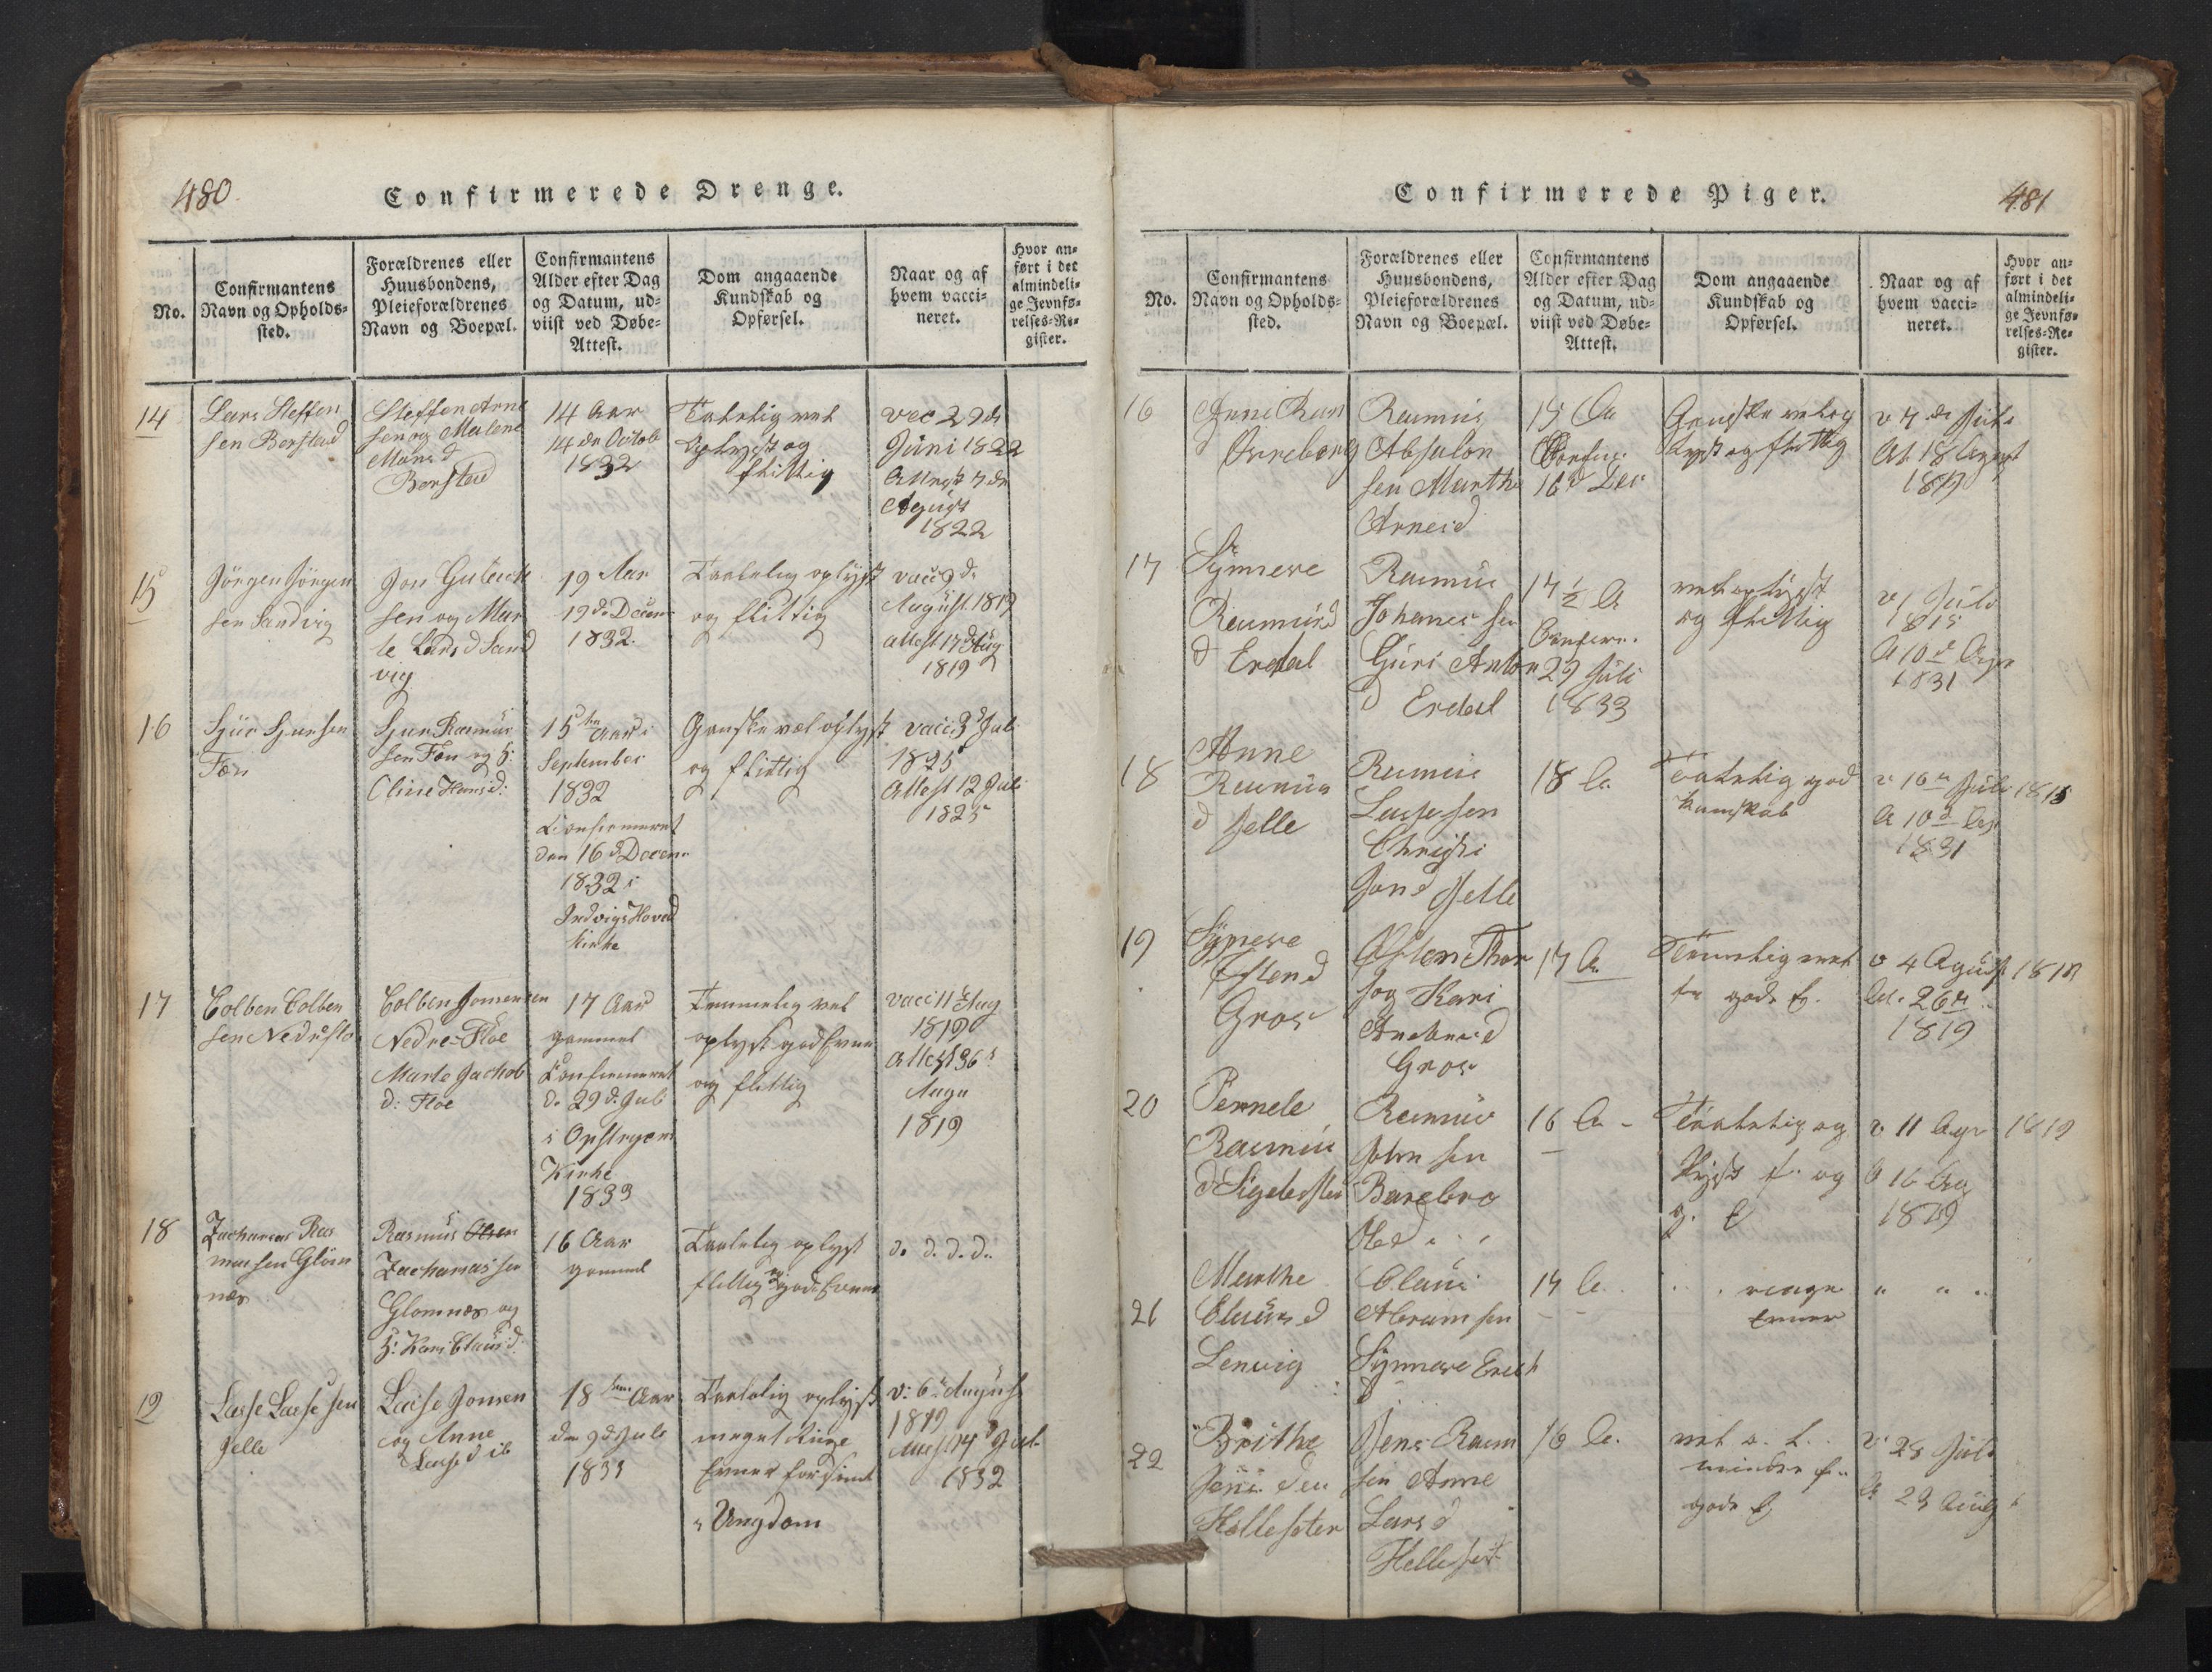 480.
Confirmerede Drenge.
No.
Confirmantens
Navn og Opholds-
sted.
Forældrenes eller
Huusbondens,
Pleieforældrenes
Navn og Boepæl.
Confirmantens
Alder efter Dag
og Datum, ud-
viist ved Døbe-
Attest.
Dom angaaende
Kundskab og
Opførsel.
Naar og af
hvem vacci-
neret.
Hvor an-
ført i det
almindeli-
ge Jevnfø-
relses-Re-
gister.
14
Lars Steffen
sen Berstad
Steffen Arne
sen og Malene
Mons d
Berstad
14 Aar
14 de Octob
1832
Taalelig vel
oplyst og
flittig
vac 29 de
Juni 1822
Attest 7 de
August
1822
15
Jörgen Jörgen
sen Sandvig
sen og Mar
te Lars d Sand
vig
19 Aar
19 de Decem
1832.
Taalelig oplyst
og flittig
vacc 9 d.
August 1819
attest 17 d Aug
1819
16
Sjur Sjursen
Fæn
Sjur Rasmus
sen Fæn og H:
Oline Hans d:
15 Aar i
September
1832
Confirmeret
den 16 d Decem
1832 i
Indvigs Hoved
Kirke
Ganske vel oplyst
og flittig
vacc 3 d Juli
1825
Attest 12 Juli
1825
17
Colben Colben
sen Nedrefloe
Colben Jonsen
Nedre-Floe
Marte Jachob
d: Floe
17 Aar
gammel
Confirmeret
d. 29 d. Juli
i Opstryens
Kirke
1833
Temmelig vel
oplyst god Evne
og flittig
vacc 11 Aug
1819
Attest
Augu
1819
18
Zacharias Ras
musen Glom
næs
Rasmus Olsen
Zachariassen
Glomnæs og
H: Kari Claus d:
16 Aar
gammel
Taalelig oplyst
flittig og gode Evner
d. d. d. d.
19
Lasse Lassesen
Jelle
Lasse Jonsen
og Anne
Lasse d ib
18 Aar
den 9 d Juli
1833
Taalelig oplyst
meget Ringe
Evner forsömt
i Ungdom
v: 6 August
1819
Attest 4 d Juli
1832
Confirmerede Piger.
481
No.
Confirmantens
Navn og Opholds-
sted.
Forældrenes eller
Huusbondens,
Pleieforældrenes
Navn og Boepæl.
Confirmantens
Alder efter Dag
og Datum, ud-
viist ved Døbe-
Attest.
Dom angaaende
Kundskab og
Opførsel.
Naar og af
hvem vacci-
neret.
Hvor an-
ført i det
almindeli-
ge Jevnfø-
relses-Re-
gister.
16
Anne Rasm
d
Rasmus
Absalon
sen Marthe
Arnes d
15 Aa
Confir.
16 d Dec
Ganske vel op
lyst og flittig
v 7 de Juli
At 18 August
1819
17
Synneve
Rasmus d
Erdal
Rasmus
Johannessen
Guri Anton
d Erdal
17 1/2 A
Confirm.
29 Juli
1833
vel oplyst
og flittig
v 1 Juli
1815
A 10 d Agu
1831
18
Anne
Rasmus
d Jelle
Rasmus
Lassesen
Christi
Jons d Jelle
18 A.
Taalelig god
kunskab
v 10 Juli 1815
A 10 d
1831
19
Synneve
Østen d
Gror
Østen Thor
s og Kari
Gror
17 A.
Temmelig vel
v 4 August 1818
At. 26
1819
20
Pernele
Rasmus
d
Rasmus
John sen
16 A.
Taalelig op
lyst f. og
g. E
v 11 Agu 1819
A 16 Aug
1819
21
Marthe
Claus d
Lenvig
Claus
Abramsen
Synneve Erich
d
17 A.
ringe
Evner
" " "
22
Brithe
Hellesster
Jens Rasm
sen Anne
Lars d
16 A.
vel o. l.
mindre f.
gode E
v. 28 Juli
A 29 Aug